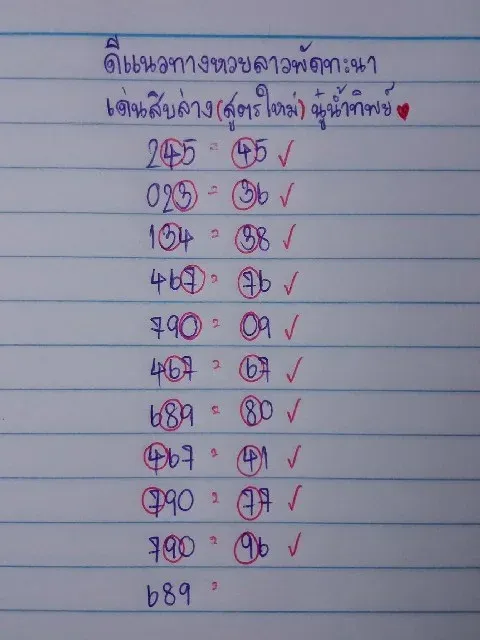 ดีแนวทางหวยลาวพัฒทะนา
เด่นสิบล่าง(สูตรใหม่) นู๋น้ำทิพย์
245 = 45 ✓
023 = 36 ✓
134 = 38 ✓
467 = 76 ✓
790 = 09 ✓
467 = 67 ✓
689 = 80 ✓
467 = 41 ✓
790 = 77 ✓
790 = 96 ✓
689 =